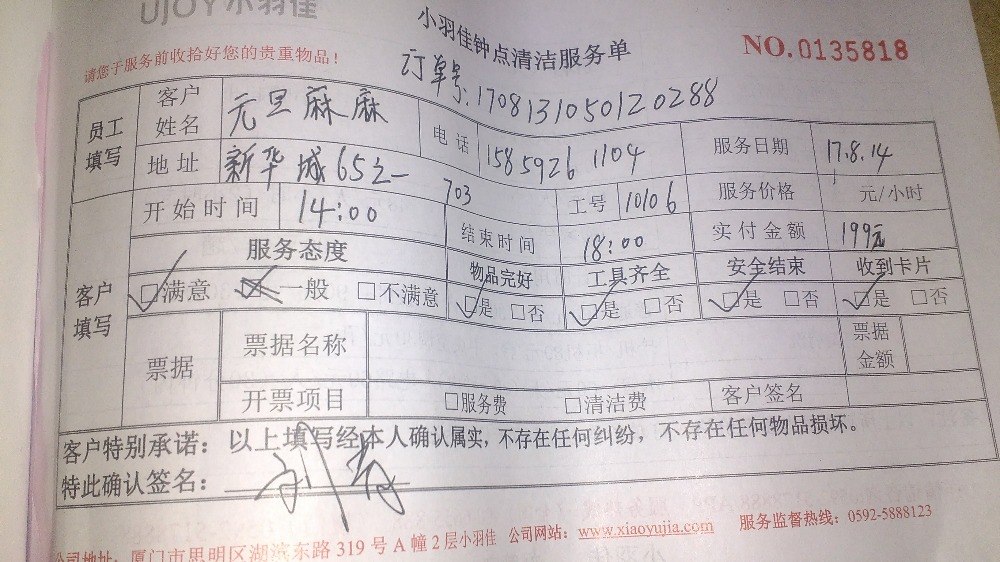 UJOY小羽佳
小羽佳钟点清洁服务单
NO.0135818
请您于服务前收拾好您的贵重物品！
订单号:170813105012 0288
员工填写
客户姓名 元旦麻麻 电话 1585926 1104 服务日期 17.8.14
地址 新华城65之一 703 工号 10106 服务价格 元/小时
客户填写
开始时间 14:00 结束时间 18:00 实付金额 199元
服务态度 物品完好 工具齐全 安全结束 收到卡片
☑满意 ☒一般 □不满意 ☑是 □否 ☑是 □否 ☑是 □否 ☑是 □否
票据 票据名称 票据金额
开票项目 □服务费 □清洁费 客户签名
客户特别承诺：以上填写经本人确认属实，不存在任何纠纷，不存在任何物品损坏。
特此确认签名：
公司地址：厦门市思明区湖滨东路319号A幢2层小羽佳 公司网站：www.xiaoyujia.com 服务监督热线：0592-5888123